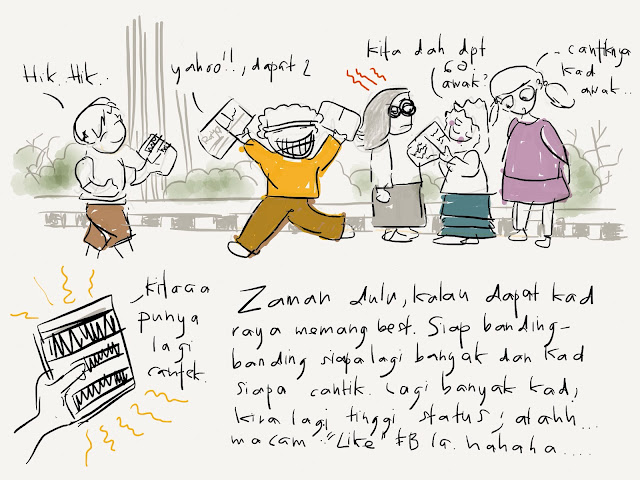 Hik.. Hik..
yahoo!!, dapat 2
kita dah dpt
60
awak?
cantiknya
kad
awak..
kitaa
punya
lagi
cantek.
Zaman dulu, kalau dapat kad
raya memang best. Siap banding-
banding siapa lagi banyak dan kad
siapa cantik. Lagi banyak kad,
kira lagi tinggi status; alahh...
macam "Like" FB la. hahaha....